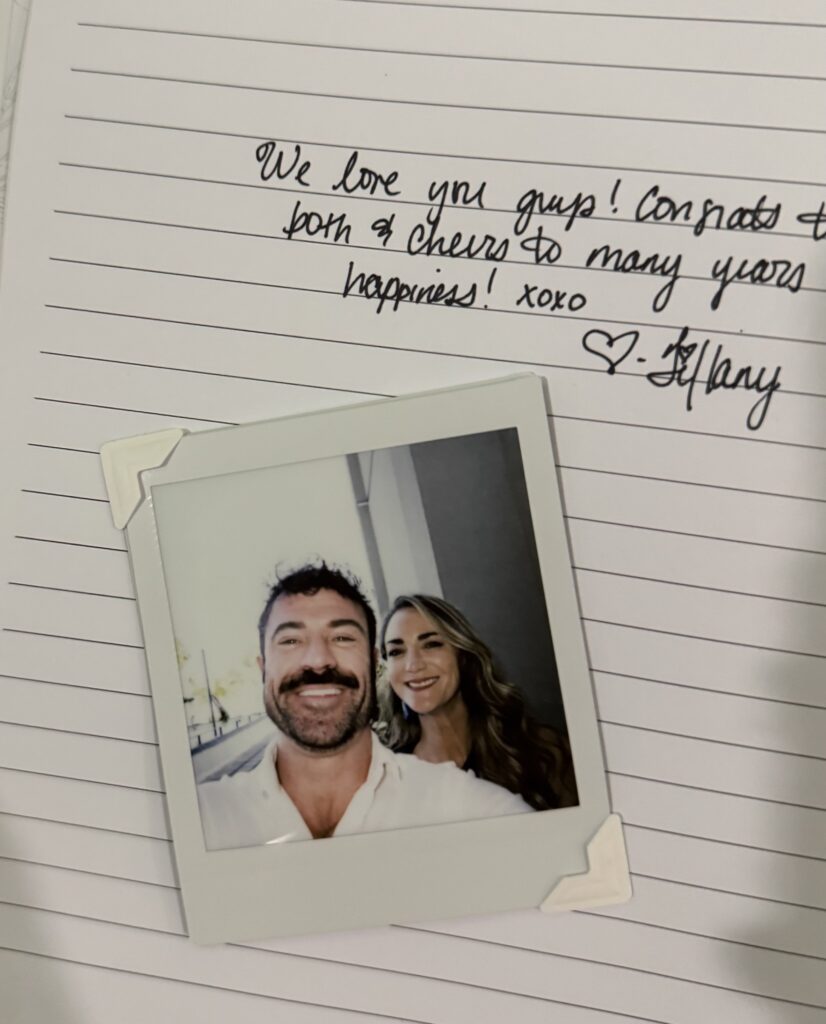 We love you guys! Congrats
both & cheers to many years
happiness! xoxo
♡- Tiffany